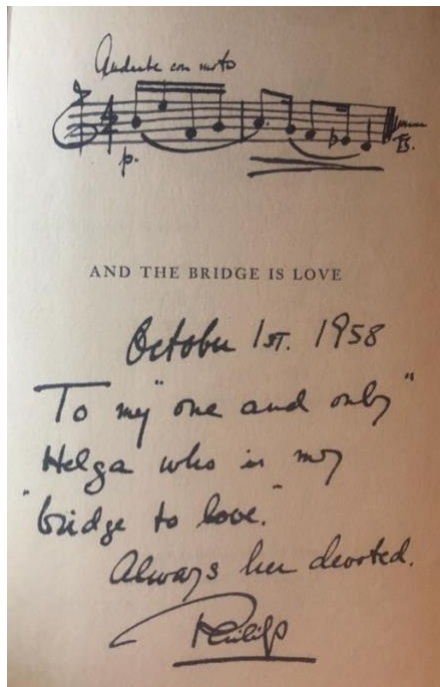 Andante con moto
p.
AND THE BRIDGE IS LOVE
October 1ST. 1958
To my "one and only"
Helga who is my
"bridge to love."
Always her devoted.
Philip